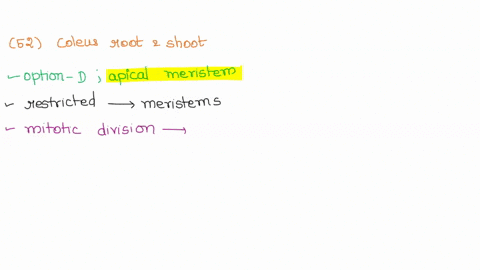 (52) Coleus root & shoot
✓ option-D ; apical meristem
✓ restricted → meristems
✓ mitotic division →